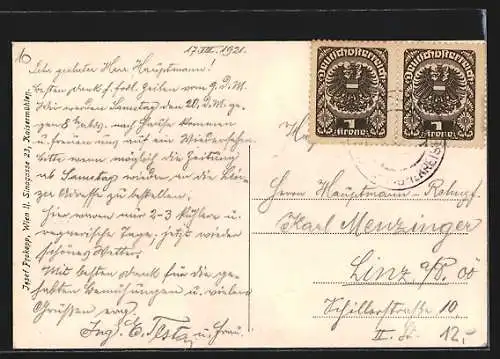 17.VIII.1921.
Sehr geehrter Herr Hauptmann!
Besten Dank f. frdl. Zeilen vom 9. d. M.
Wir werden Samstag den 20. d. M. ge-
gen 8 abds. nach Hause kommen
und freuen uns auf ein Wiedersehen.
Bitte wenn möglich die Zeitung
ab Samstag wieder an die Linzer
Adresse zu bestellen.
Hier waren nur 2-3 kühlere u.
regnerische Tage, jetzt wieder
schönes Wetter.
Mit besten Dank für die ge-
habten Bemühungen u. vielen
Grüssen erg.
Ing. E. Testa u. Frau.
Josef Prokopp, Wien II. Sinagasse 23, Kaisermühlen.
Deutschösterreich
1
Krone
Deutschösterreich
1
Krone
Herrn Hauptmann-
Karl Menzinger
Linz a/D. OÖ
Schillerstraße 10
II. St.
12,-